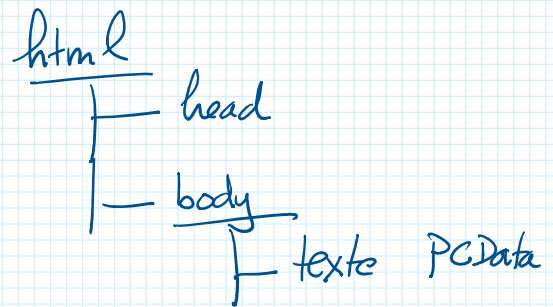 html
head
body
texte PCData